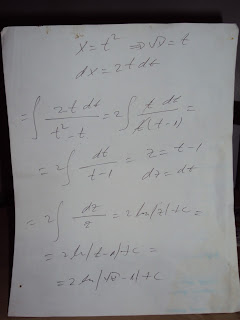 x = t² ⇒ √x = t
dx = 2t dt
= ∫ 2t dt / (t² - t) = 2∫ t dt / (t(t-1)) =
= 2∫ dt / (t-1) = z = t-1
dz = dt
= 2∫ dz / z = 2 ln|z| + c =
= 2 ln|t-1| + c =
= 2 ln|√x - 1| + c